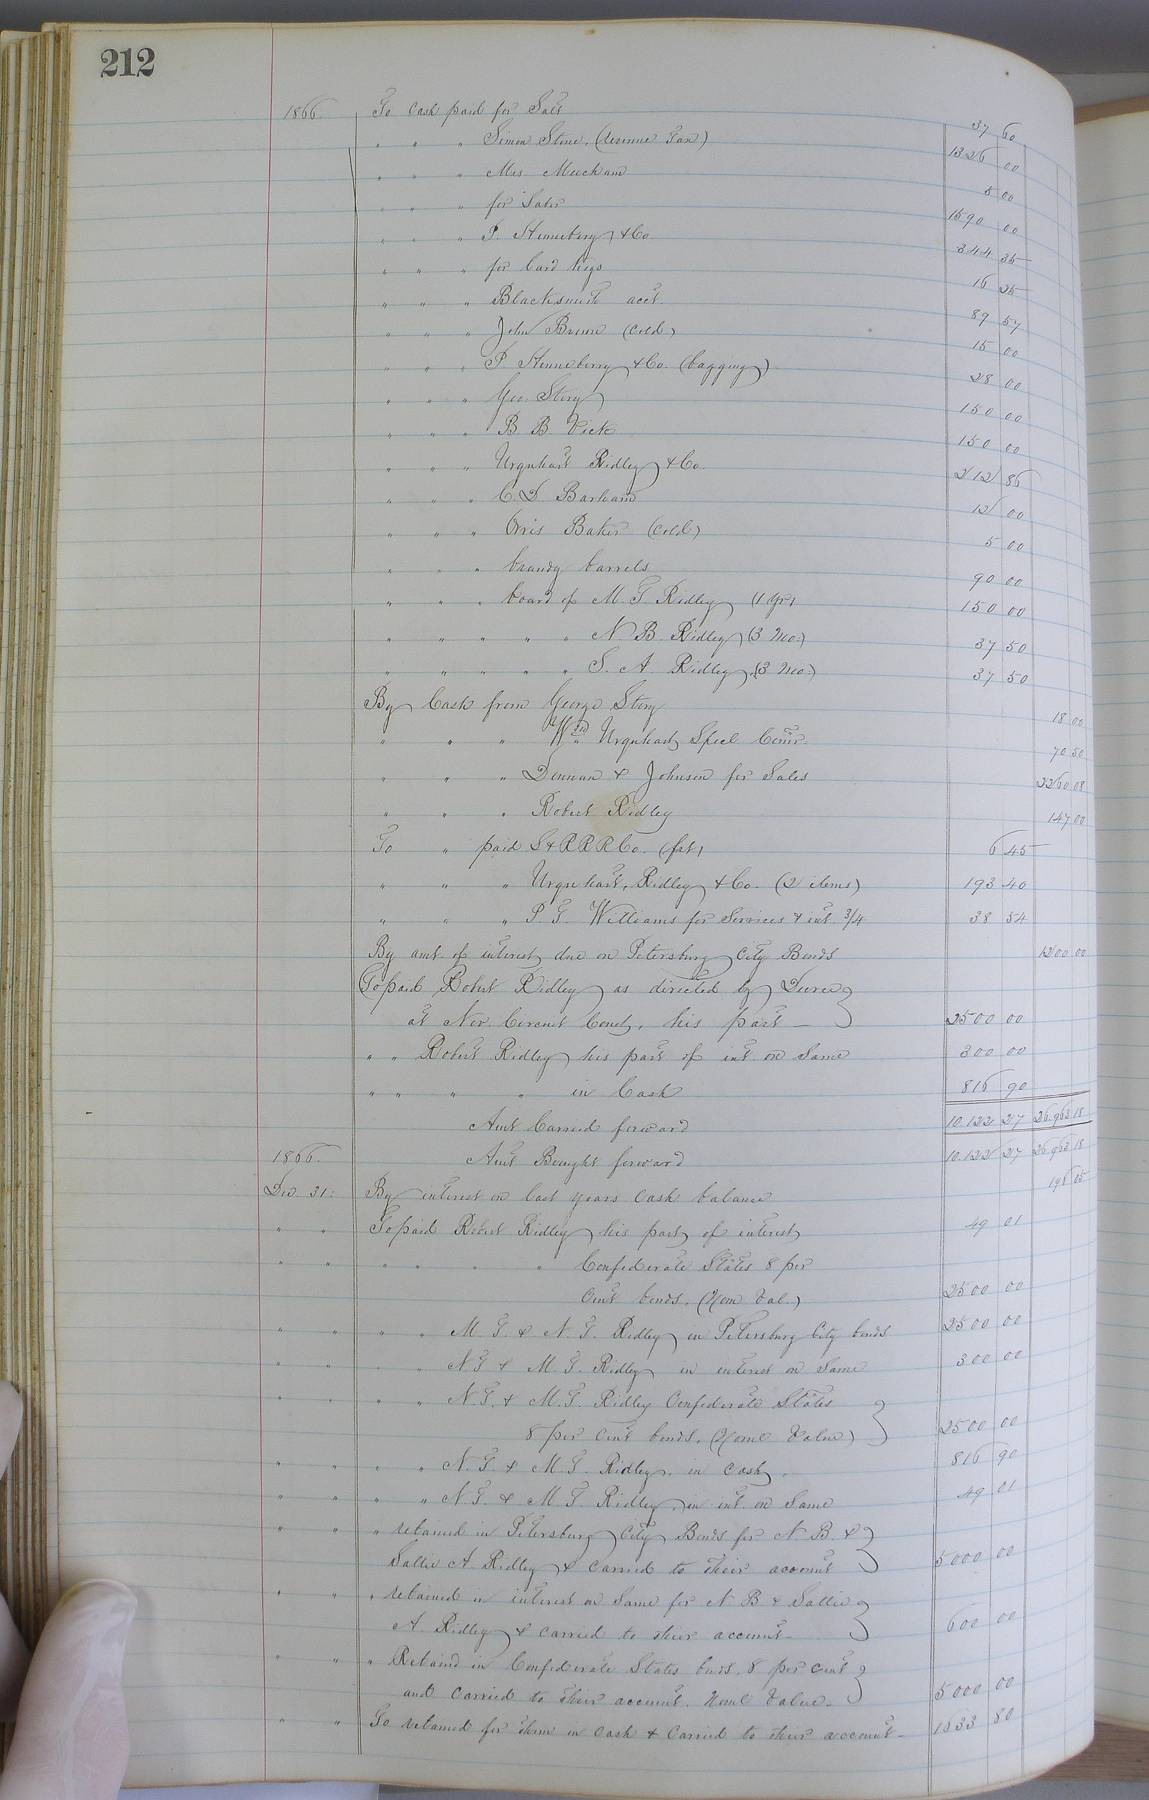 212
1866. To Cash paid for Salt 37 60
" " " Simon Stone. (Revenue Tax) 1326 00
" " " Mrs. Meacham 5 00
" " " for 1590 00
" " " P. Henneberry & Co. 344 35
" " " for Card 16 25
" " " Blacksmith acct. 89 57
" " " John Brown (cold) 15 00
" " " P Henneberry & Co. (bagging) 28 00
" " " Geo. Story 150 00
" " " B B Vick 150 00
" " " Urquhart Ridley & Co. 212 86
" " " C. D Barham 12 00
" " " Orris Baker (cold) 5 00
" " " brandy barrels 90 00
" " " board of M. T. Ridley (1 yr) 150 00
" " " " " N B. Ridley (3 Mo:) 37 50
" " " " " S. A. Ridley (3 Mo:) 37 50
By Cash from George Story 18 00
" " " Wm Urquhart Specl Comr. 70 50
" " " Denman & Johnson for Sales 2260 08
" " " Robert Ridley 147 00
To " paid S & R R R Co. (frt) 6 45
" " " Urquhart, Ridley & Co. (2 items) 193 40
" " " P T Williams for Services & int 3/4 38 54
By amt. of interest due on Petersburg City Bonds 1200 00
To paid Robert Ridley as directed by Decree
at Nov. Circuit Court, his part — 2500 00
" " Robert Ridley his part of int on Same 300 00
" " " " in Cash 816 90
Amt Carried forward 10.122 27 26.963 18
1866. Amt Bought forward 10.122 27 26.963 18
Dec 31: By interest on last years Cash balance 196 05
" " To paid Robert Ridley his part of interest 49 01
" " " " " " Confederate States 8 per
Cent bonds. (Nom Val.) 2500 00
" " " " M. T. & N. T. Ridley in Petersburg City bonds 2500 00
" " " " N T & M. T. Ridley in interest on Same 300 00
" " " " N. T. & M. T. Ridley Confederate States
8 per Cent bonds. (Noml Value) 2500 00
" " " " N. T. & M T. Ridley. in Cash. 816 90
" " " " N T. & M. T Ridley. in int. on Same 49 01
" " " retained in Petersburg City Bonds for N. B. &
Sallie A. Ridley & Carried to their account 5000 00
" " " retained in interest on Same for N B & Sallie
A. Ridley & carried to their account — 600 00
" " " Retaind in Confederate States bnds. 8 per cent
and Carried to their account. Noml Value. 5000 00
" " To retained for them in Cash & Carried to their account — 1633 80